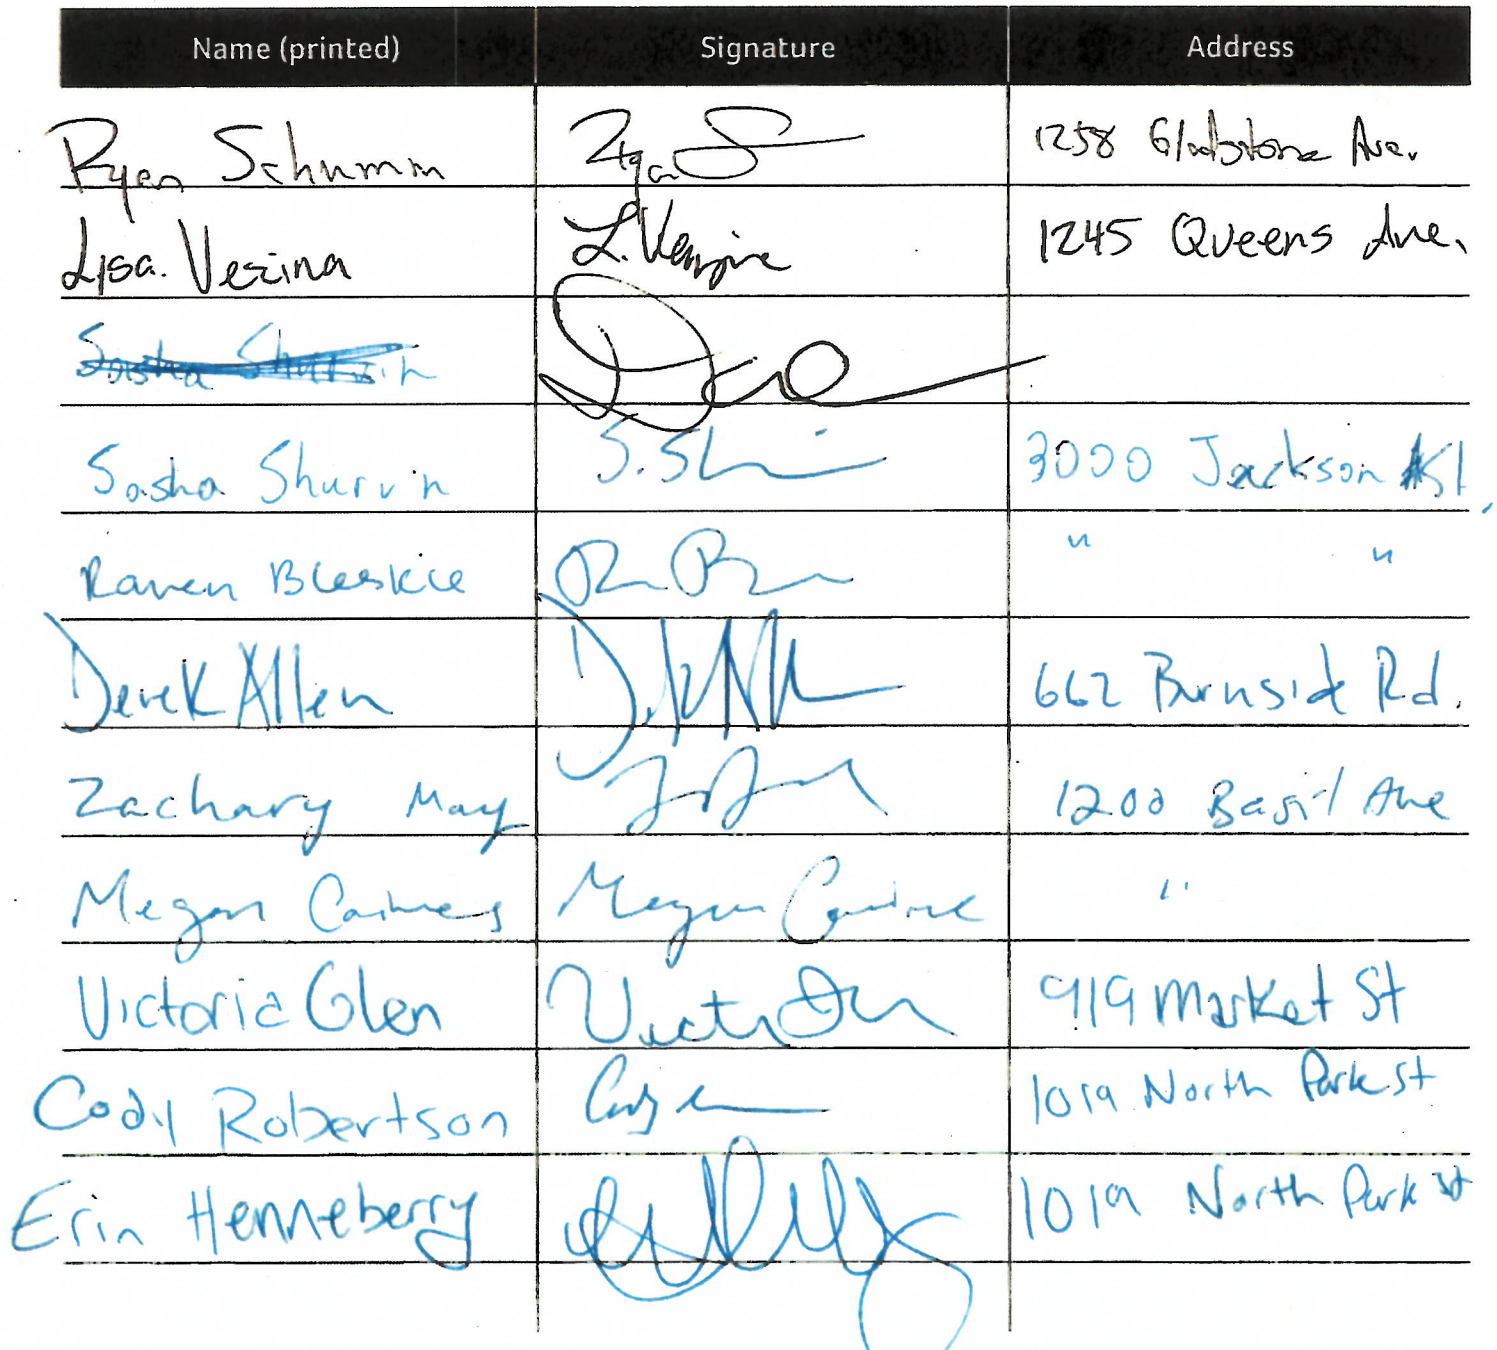 Name (printed) Signature Address
Ryan Schumm Ryan S 1258 Gladstone Ave.
Lisa. Vezina L. Vezina 1245 Queens Ave.
Sasha Shurvin
Sasha Shurvin S. Sh 3000 Jackson St.
Raven Bleskie R B " "
Derek Allen D. 662 Burnside Rd.
Zachary May 1200 Basil Ave
Megan Cairnes Megan "
Victoria Glen 919 Market St
Cody Robertson Cody 1019 North Park St
Erin Henneberry 1019 North Park St